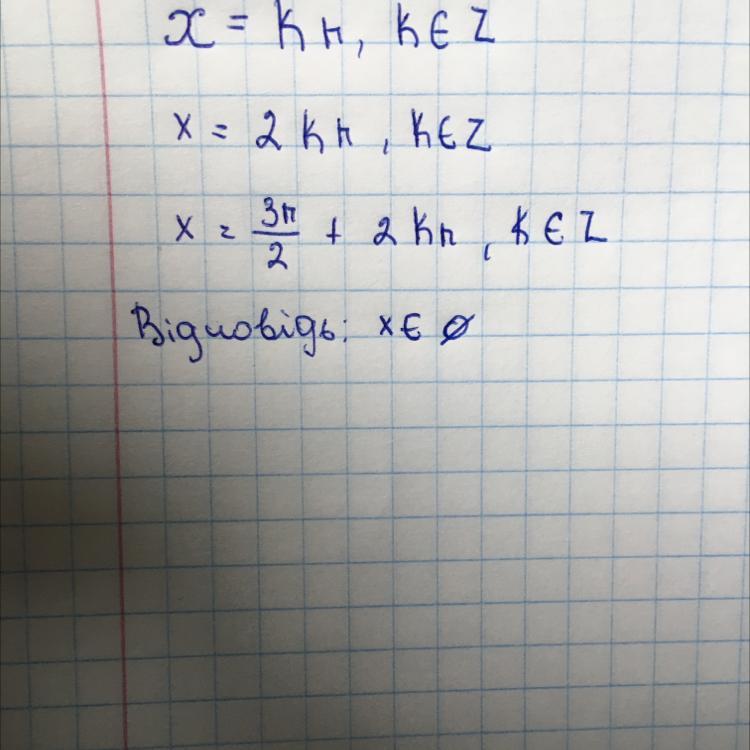 x = kπ, k ∈ Z
x = 2kπ, k ∈ Z
x = 3π/2 + 2kπ, k ∈ Z
Відповідь: x ∈ ∅